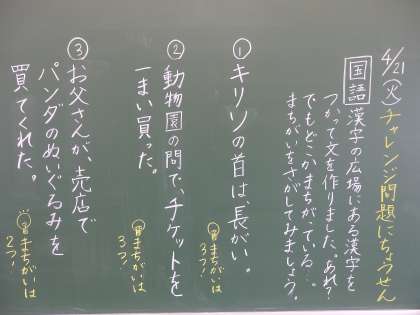 4/21(火)チャレンジ問題にちょうせん
国語 漢字の広場にある漢字を
つかって文を作りました。あれ?
でもどこかまちがっている…。
まちがいをさがしてみましょう。
①キリソの首は、長がい。
まちがいは
3つ!
②動物園の問で、チケットを
一まい買った。
まちがいは
3つ!
③お父さんが、売店で
パンダのぬいぐるみを
買てくれた。
まちがいは
2つ!